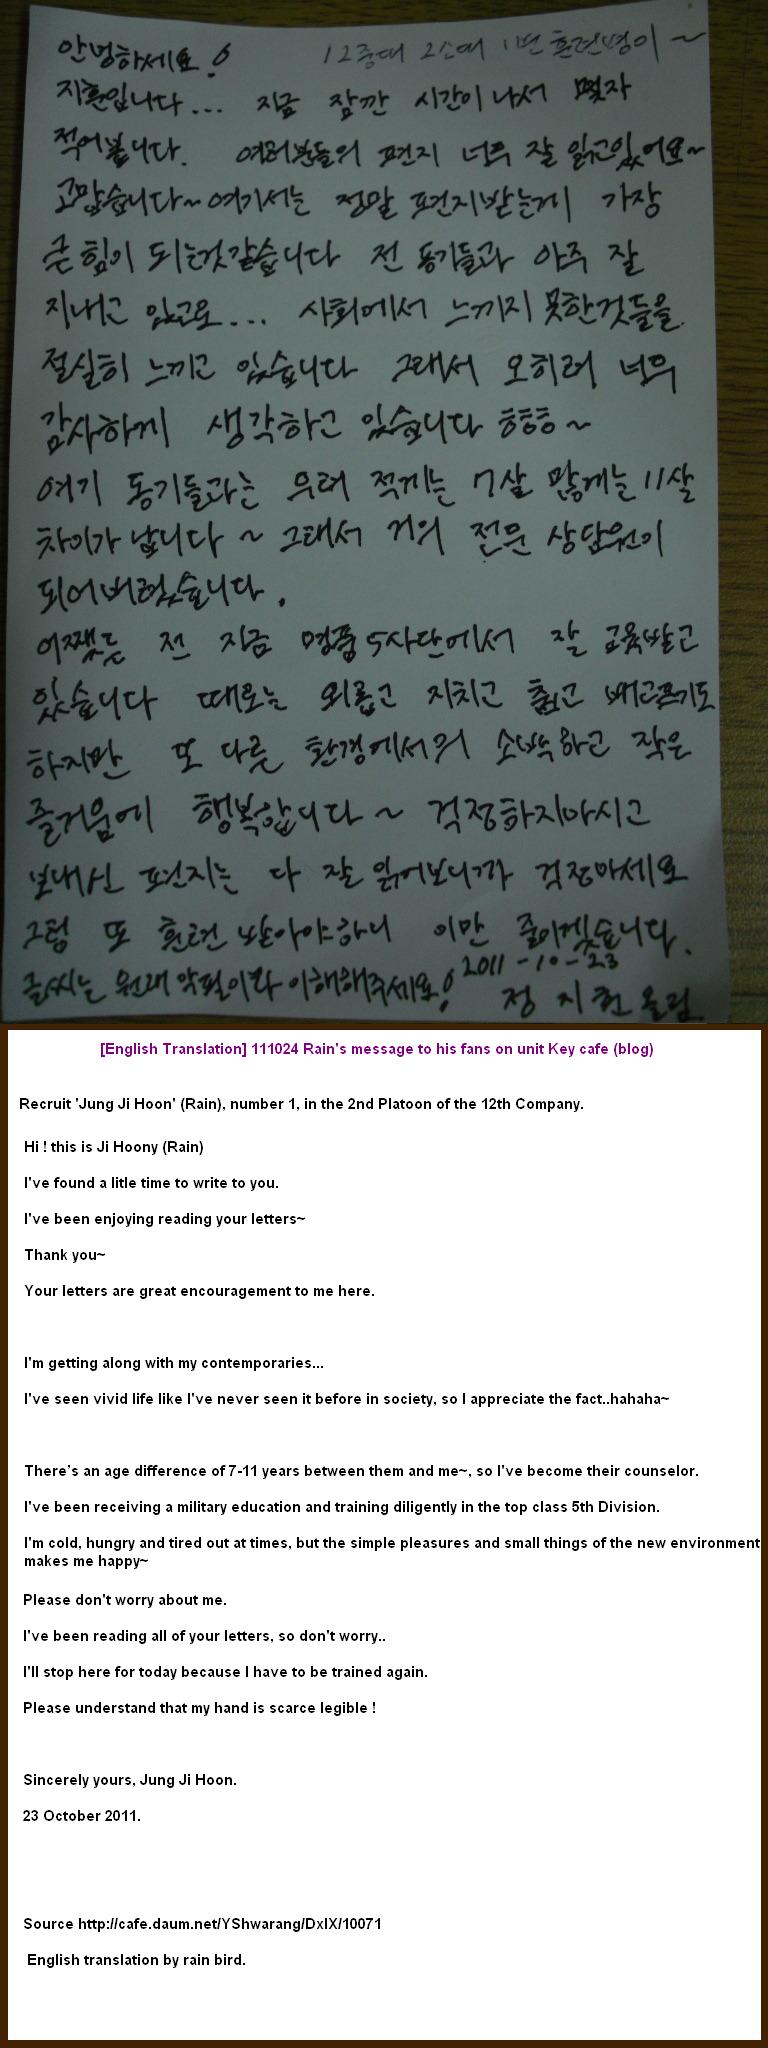 안녕하세요! 12중대 2소대 1번 훈련병이~
지훈입니다... 지금 잠깐 시간이 나서 몇자
적어봅니다. 여러분들의 편지 너무 잘 읽고있어요~
고맙습니다~ 여기서는 정말 편지받는게 가장
큰 힘이 되는것같습니다 전 동기들과 아주 잘
지내고 있고요... 사회에서 느끼지 못한것들을
절실히 느끼고 있습니다 그래서 오히려 너무
감사하게 생각하고 있습니다 ㅎㅎㅎ~
여기 동기들과는 무려 적게는 7살 많게는 11살
차이가 납니다~ 그래서 거의 전문 상담원이
되어버렸습니다.
어쨌든 전 지금 명품 5사단에서 잘 교육받고
있습니다 때로는 외롭고 지치고 춥고 배고프기도
하지만 또 다른 환경에서의 소박하고 작은
즐거움에 행복합니다~ 걱정하지마시고
보내신 편지는 다 잘 읽어보니까 걱정마세요
그럼 또 훈련 받아야하니 이만 줄이겠습니다.
글씨는 원래 악필이라 이해해주세요! 2011-10-23
정지훈 올림
[English Translation] 111024 Rain's message to his fans on unit Key cafe (blog)
Recruit 'Jung Ji Hoon' (Rain), number 1, in the 2nd Platoon of the 12th Company.
Hi ! this is Ji Hoony (Rain)
I've found a litle time to write to you.
I've been enjoying reading your letters~
Thank you~
Your letters are great encouragement to me here.
I'm getting along with my contemporaries...
I've seen vivid life like I've never seen it before in society, so I appreciate the fact..hahaha~
There's an age difference of 7-11 years between them and me~, so I've become their counselor.
I've been receiving a military education and training diligently in the top class 5th Division.
I'm cold, hungry and tired out at times, but the simple pleasures and small things of the new environment
makes me happy~
Please don't worry about me.
I've been reading all of your letters, so don't worry..
I'll stop here for today because I have to be trained again.
Please understand that my hand is scarce legible !
Sincerely yours, Jung Ji Hoon.
23 October 2011.
Source http://cafe.daum.net/YShwarang/DxIX/10071
English translation by rain bird.